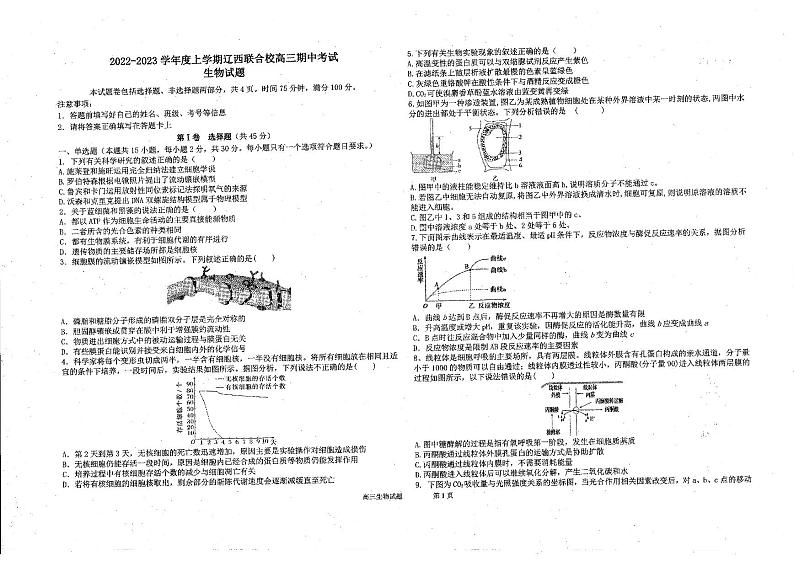 2022-2023 学年度上学期辽西联合校高三期中考试
生物试题
本试题卷包括选择题、非选择题两部分，共 4 页，时间 75 分钟，满分 100 分。
注意事项：
1. 答题前填写好自己的姓名、班级、考号等信息
2. 请将答案正确填写在答题卡上
第 I 卷 选择题（共 45 分）
一、单选题（本题共 15 小题，每小题 2 分，共 30 分。每小题只有一个选项符合题目要求。）
1. 下列有关科学研究的叙述正确的是（ ）
A. 施莱登和施旺运用完全归纳法建立细胞学说
B. 罗伯特森根据电镜照片提出了流动镶嵌模型
C. 鲁宾和卡门运用放射性同位素标记法探明氧气的来源
D. 沃森和克里克提出 DNA 双螺旋结构模型属于物理模型
2. 关于蓝细菌和黑藻的说法正确的是（ ）
A. 都以 ATP 作为细胞生命活动的主要直接能源物质
B. 二者所含的光合色素的种类相同
C. 都有生物膜系统，有利于细胞代谢的有序进行
D. 遗传物质的主要储存场所都是细胞核
3. 细胞膜的流动镶嵌模型如图所示。下列叙述正确的是( )
A. 磷脂和糖脂分子形成的磷脂双分子层是完全对称的
B. 胆固醇镶嵌或贯穿在膜中利于增强膜的流动性
C. 物质进出细胞方式中的被动运输过程与膜蛋白无关
D. 有些膜蛋白能识别并接受来自细胞内外的化学信号
4. 科学家将每个变形虫切成两半，一半含有细胞核，一半没有细胞核。将所有细胞放在相同且适
宜的条件下培养，一段时间后，实验结果如图所示。据图分析，下列说法不正确的是( )
无细胞核的存活个数
有核细胞的存活个数
存活细胞个数/个
1 2 3 4 5 6 7 8 9 10 天
A. 第 2 天到第 3 天，无核细胞的死亡数迅速增加，原因主要是实验操作对细胞造成损伤
B. 无核细胞仍能存活一段时间，原因是细胞内已经合成的蛋白质等物质仍能发挥作用
C. 培养过程中有核细胞存活个数的减少与细胞凋亡有关
D. 若将有核细胞的细胞核取出，剩余部分的新陈代谢速度会逐渐减缓直至死亡
5. 下列有关生物实验现象的叙述正确的是（ ）
A. 高温变性的蛋白质可以与双缩脲试剂反应产生紫色
B. 在滤纸条上随层析液扩散最慢的色素呈蓝绿色
C. 灰绿色重铬酸钾在酸性条件下与酒精反应变成橙色
D. CO₂可使溴麝香草酚蓝水溶液由蓝变黄再变绿
6. 如图甲为一种渗透装置，图乙为某成熟植物细胞处在某种外界溶液中某一时刻的状态，两图中水
分的进出都处于平衡状态。下列分析错误的是 （ ）
甲
乙
A. 图甲中的液柱能稳定维持比 b 溶液液面高 h，说明溶质分子不能通过 c。
B. 若图乙中细胞无法自动复原，将图乙中外界溶液换成清水时，细胞可复原，则说明原溶液的溶质不
能进入细胞。
C. 图乙中 1、3 和 5 组成的结构相当于图甲中的 c。
D. 图中溶液浓度 a 处等于 b 处、2 处等于 6 处。
7. 下面图示曲线表示在最适温度、最适 pH 条件下，反应物浓度与酶促反应速率的关系，据图分析
错误的是（ ）
反应速率
曲线c
曲线b
曲线a
A
B
O 甲 乙 反应物浓度
A. 曲线 b 达到 B 点后，酶促反应速率不再增大的原因是酶数量有限
B. 升高温度或增大 pH，重复该实验，因酶促反应的活化能升高，曲线 b 应变成曲线 a
C. B 点时往反应混合物中加入少量同样的酶，曲线 b 变为曲线 c
D. 反应物浓度是限制 AB 段反应速率的主要因素
8. 线粒体是细胞呼吸的主要场所，具有两层膜，线粒体外膜含有孔蛋白构成的亲水通道，分子量
小于 1000 的物质可以自由通过；线粒体内膜透过性较小，丙酮酸(分子量 90)进入线粒体两层膜的
过程如图所示。以下说法错误的是( )
线粒体外膜
线粒体内膜
丙酮酸
丙酮酸
A. 图中糖酵解的过程是指有氧呼吸第一阶段，发生在细胞质基质
B. 丙酮酸通过线粒体外膜孔蛋白的运输方式是协助扩散
C. 丙酮酸通过线粒体内膜时，不需要消耗能量
D. 丙酮酸进入线粒体后可以继续氧化分解，产生二氧化碳和水
9. 下图为 CO₂吸收量与光照强度关系的坐标图，当光合作用相关因素改变后，对 a、b、c 点的移动
高三生物试题 第 1 页